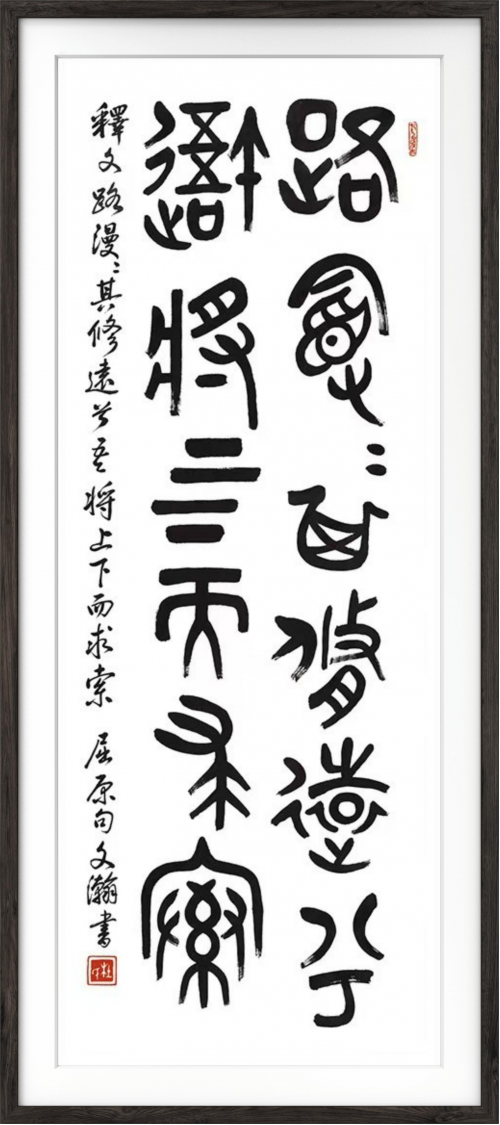 路漫〻其修遠兮
吾將上下而求索
釋文路漫〻其修遠兮吾將上下而求索 屈原句文瀚書